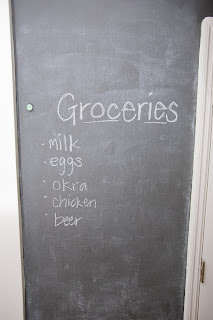 Groceries
· milk
· eggs
· okra
· chicken
· beer